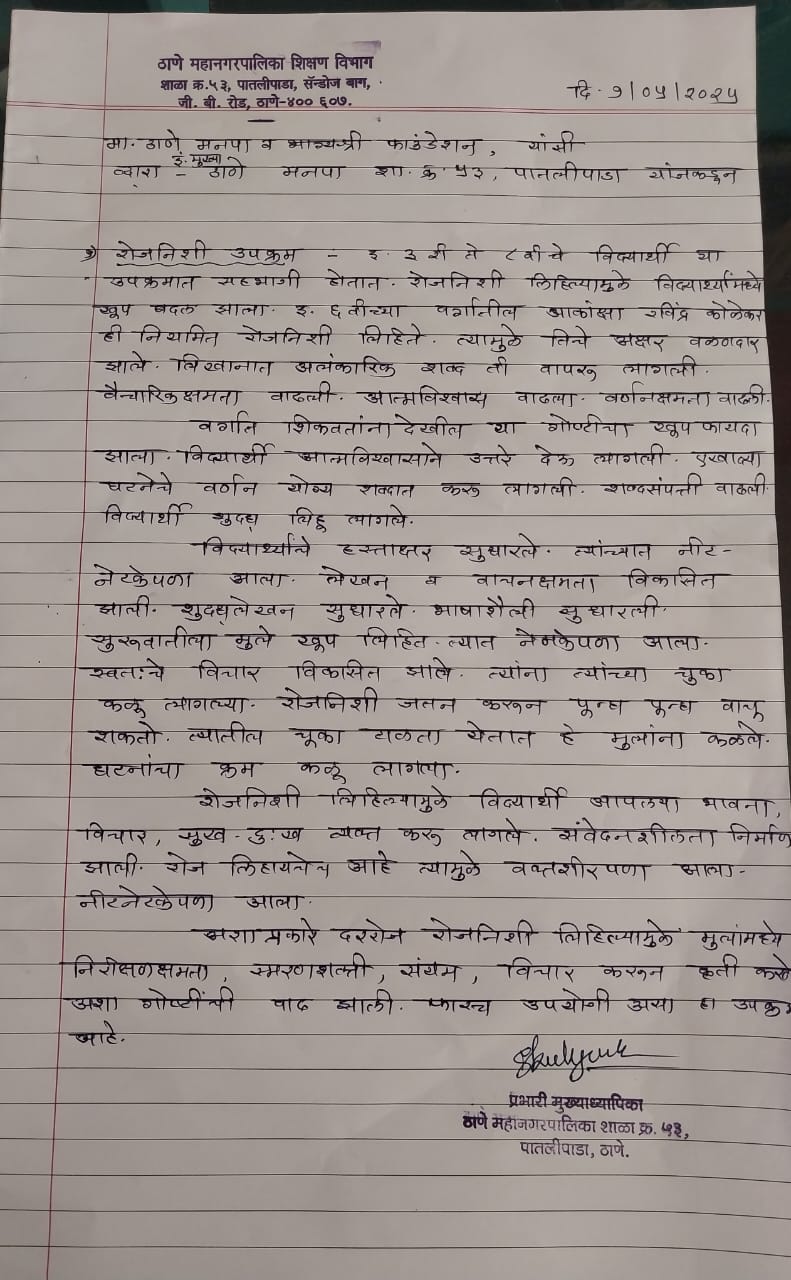 ठाणे महानगरपालिका शिक्षण विभाग
शाळा क्र.५३, पातलीपाडा, सॅन्डोज बाग,
जी. बी. रोड, ठाणे-४०० ६०७.
दि. ९/०५/२०२५
मा. ठाणे मनपा व भाग्यश्री फाउंडेशन, यांसी
इं. मुख्या
व्दारा - ठाणे मनपा शा. क्र ५३, पातलीपाडा यांनकडून
१) रोजनिशी उपक्रम - इ. ३ री ते ८ वी चे विद्यार्थी या
उपक्रमात सहभागी होतात. रोजनिशी लिहिल्यामुळे विद्यार्थ्यांमध्ये
खूप बदल झाला. इ. ६ वीच्या वर्गातील आकांक्षा रविंद्र कोळेकर
ही नियमित रोजनिशी लिहिते. त्यामुळे तिचे अक्षर वळणदार
झाले. लिखानात अलंकारिक शब्द ती वापरू लागली.
वैचारिक क्षमता वाढली. आत्मविश्वास वाढला. वर्णनक्षमता वाढली.
वर्गात शिकवतांना देखील या गोष्टीचा खूप फायदा
झाला. विद्यार्थी आत्मविश्वासाने उत्तरे देऊ लागली. एखाद्या
घटनेचे वर्णन योग्य शब्दात करू लागली. शब्दसंपत्ती वाढली.
विद्यार्थी शुद्ध लिहू लागले.
विद्यार्थ्यांचे हस्ताक्षर सुधारले. त्यांच्यात नीट-
नेटकेपणा आला. लेखन व वाचनक्षमता विकासित
झाली. शुद्धलेखन सुधारले. भाषाशैली सुधारली.
सुरूवातीला मुले खूप लिहित. त्यात नेमकेपणा आला.
स्वतःचे विचार विकासित झाले. त्यांना त्यांच्या चुका
कळू लागल्या. रोजनिशी जतन करून पून्हा पून्हा वाचू
शकतो. त्यातील चूका टाळता येतात हे मुलांना कळले.
घटनांचा क्रम कळू लागला.
रोजनिशी लिहिल्यामुळे विद्यार्थी आपल्या भावना,
विचार, सुख-दुःख व्यक्त करू लागले. संवेदनशीलता निर्माण
झाली. रोज लिहायचेच आहे त्यामुळे वक्तशीरपणा आला.
नीटनेटकेपणा आला.
अशा प्रकारे दररोज रोजनिशी लिहिल्यामुळे मुलांमध्ये
निरीक्षणक्षमता, स्मरणशक्ती, संयम, विचार करून कृती करणे
अशा गोष्टींची वाढ झाली. फारच उपयोगी असा हा उपक्रम
आहे.
प्रभारी मुख्याध्यापिका
ठाणे महानगरपालिका शाळा क्र. ५३,
पातलीपाडा, ठाणे.